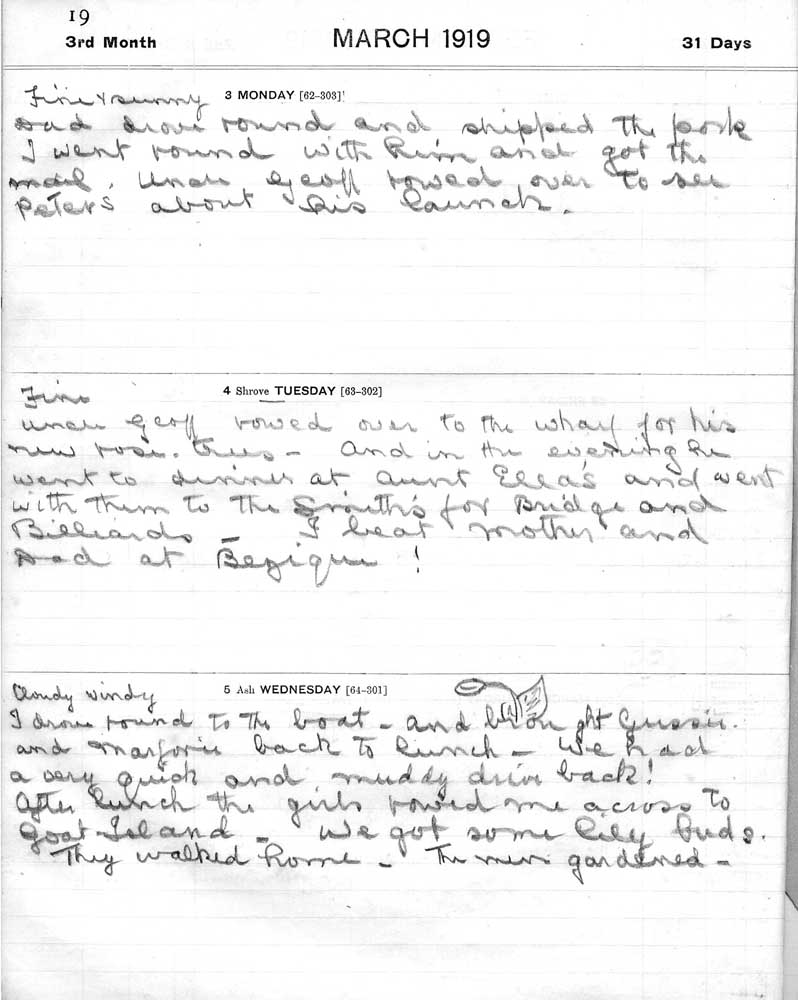 19
3rd Month MARCH 1919 31 Days
Fine & sunny 3 MONDAY [62-303]
Dad drove round and shipped the pork
I went round with him and got the
mail. Uncle Geoff rowed over to see
Peters about his launch.
Fine 4 Shrove TUESDAY [63-302]
Uncle Geoff rowed over to the wharf for his
new rose-trees - And in the evening he
went to dinner at Aunt Ella's and went
with them to the Smith's for Bridge and
Billiards - I beat mother and
Dad at Bezique !
Cloudy windy 5 Ash WEDNESDAY [64-301]
I drove round to the boat - and brought Gussie.
and Marjorie back to lunch - We had
a very quick and muddy drive back!
After lunch the girls rowed me across to
Goat Island - We got some lily buds.
They walked home - The men gardened -